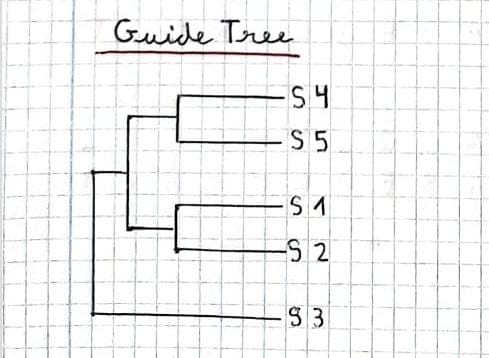 Guide Tree
S 4
S 5
S 1
S 2
S 3